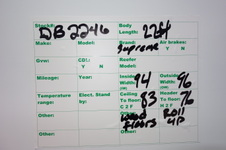 Stock#: DB2246
Body Length: 22ft
Make: Model: Brand: Supreme Air brakes: Y N
Gvw: CDL: Y N Reefer Model:
Mileage: Year: Inside Width: 94 Outside Width: 96
Temperature range: Elect. Stand by: Ceiling To floor: 83 Header To floor: 76
Other: Other: Wood Floors Roll up
Other: Other: